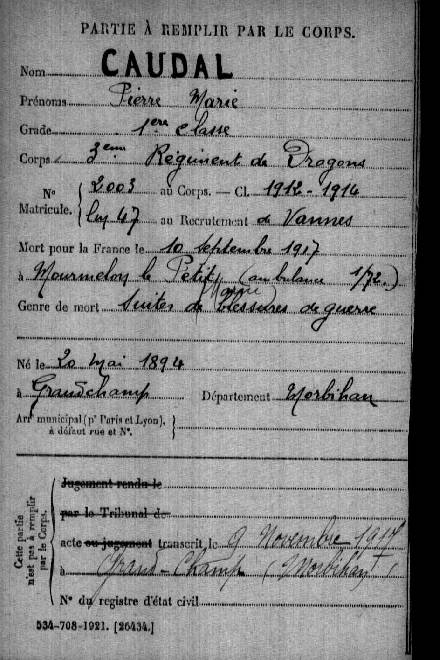 PARTIE À REMPLIR PAR LE CORPS.
Nom CAUDAL
Prénoms Pierre Marie
Grade 1ere classe
Corps 3eme Régiment de Dragons
N° Matricule. 2003 au Corps. — Cl. 1912-1914
47 au Recrutement de Vannes
Mort pour la France le 10 septembre 1917
à Mourmelon le Petit (ambulance 1/72.)
Marne
Genre de mort Suites de blessures de guerre
Né le 20 mai 1894
à Grandchamp Département Morbihan
Arr municipal (pr Paris et Lyon),
à défaut rue et N°.
Cette partie n'est pas à remplir par le Corps.
Jugement rendu le
par le Tribunal de
acte ou jugement transcrit le 9 Novembre 1917
à Grand-Champ (Morbihan)
N° du registre d'état civil
534-708-1921. [26434.]